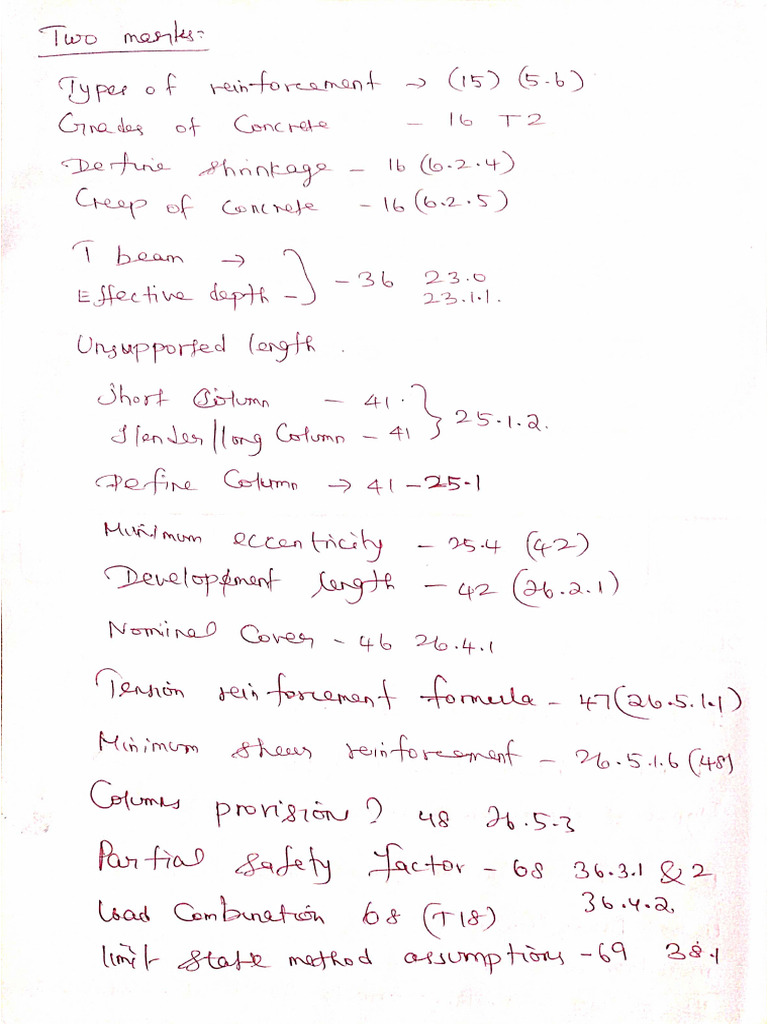 Two marks:-
Types of reinforcement → (15) (5.6)
Grades of Concrete - 16 T2
Define shrinkage - 16 (6.2.4)
Creep of concrete - 16 (6.2.5)
T beam →
Effective depth - } - 36 23.0
23.1.1.
Unsupported length.
Short Column - 41.
Slender/long Column - 41 } 25.1.2.
Define Column → 41 - 25.1
Minimum eccentricity - 25.4 (42)
Development length - 42 (26.2.1)
Nominal Cover - 46 26.4.1
Tension reinforcement formula - 47 (26.5.1.1)
Minimum shear reinforcement - 26.5.1.6 (48)
Columns provision? 48 26.5.3
Partial Safety factor - 68 36.3.1 & 2
36.4.2
Load Combination 68 (T18)
limit state method assumptions - 69 38.1